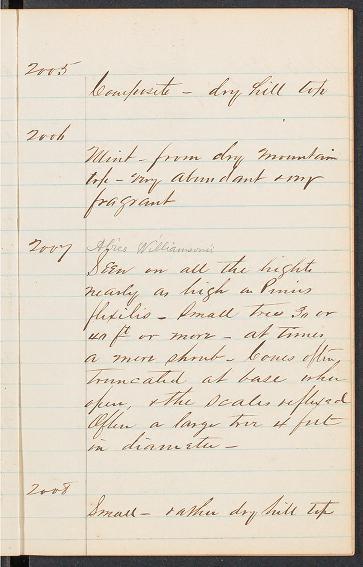 2005
Composite - dry hill top
2006
Mint - from dry mountain
top - very abundant & very
fragrant
2007 Abies Williamsonii
Seen on all the hights
nearly as high as Pinus
flexilis - Small tree 30 or
40 ft or more - at times
a mere shrub - Cones often
truncated at base when
open, & the scales reflexed
Often a large tree 4 feet
in diameter -
2008
Small - rather dry hill top